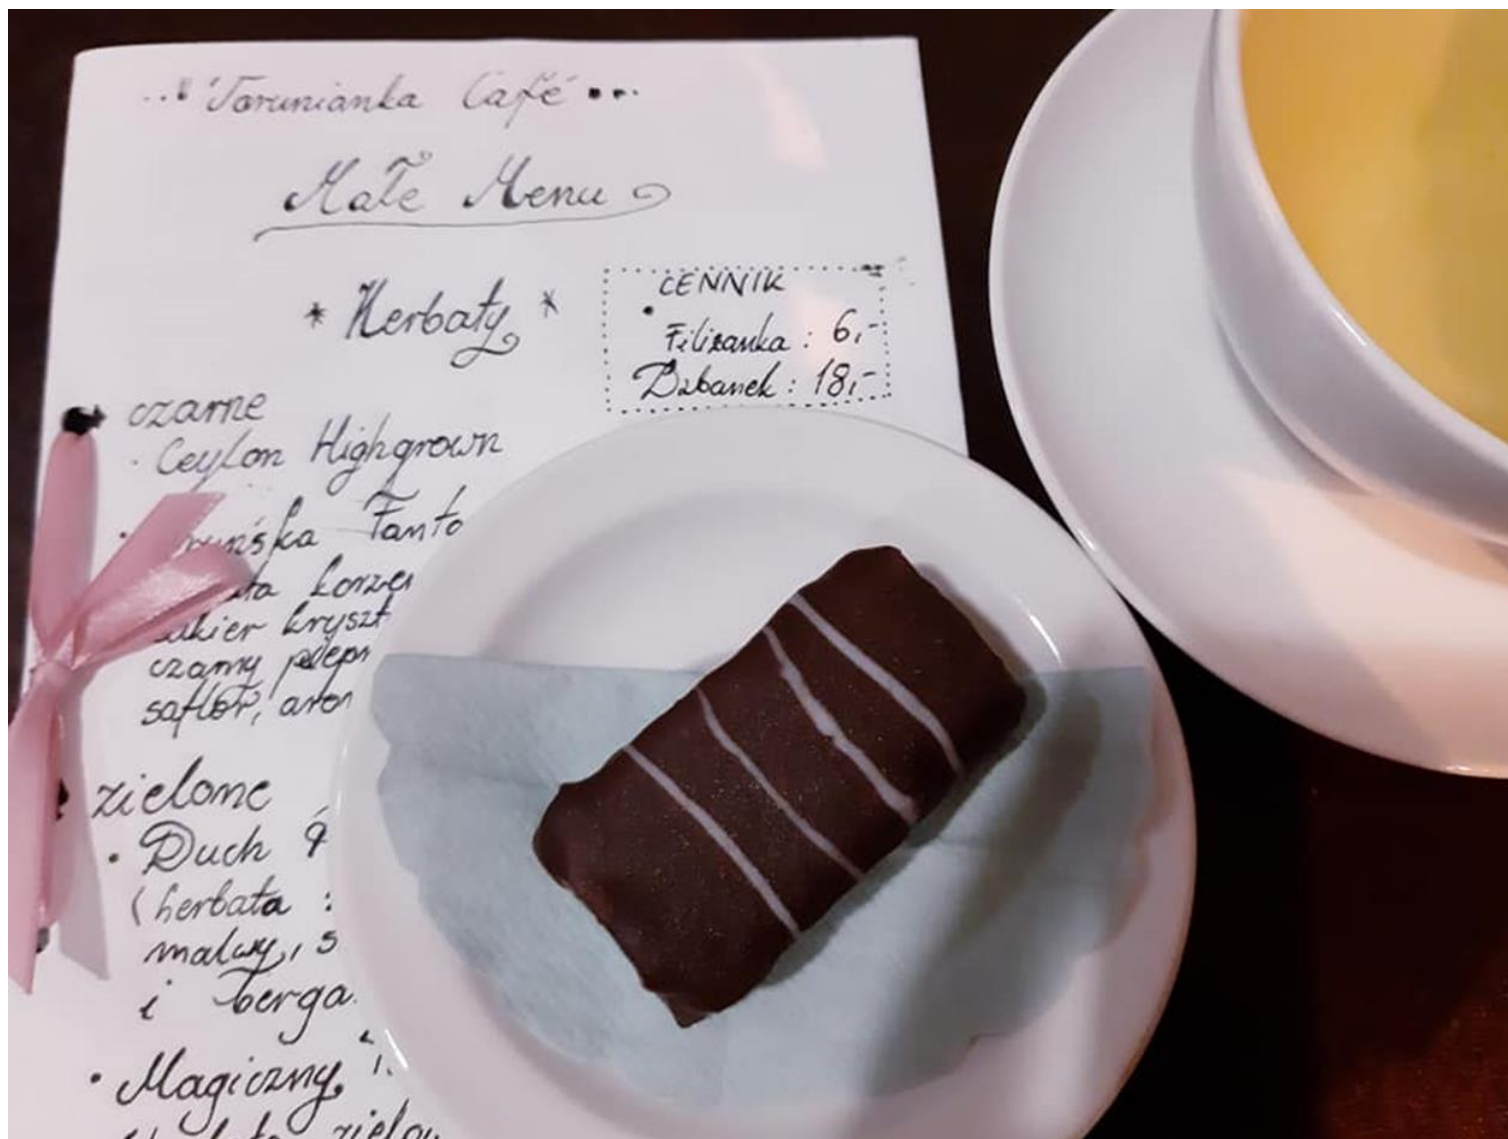 Torunianka Café
Małe Menu
* Herbaty *
CENNIK
Filiżanka : 6,-
Dzbanek : 18,-
czarne
· Ceylon Highgrown
korze
kryszt
czarny piepr
saflor, aro
zielone
· Duch
(herbata :
malwy, s
i berga
· Magiczny